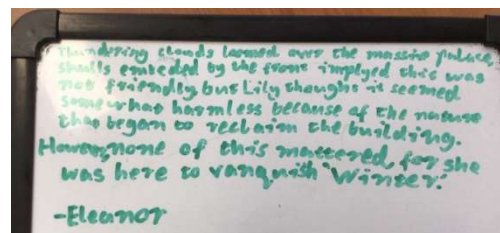 thundering clouds loomed over the massive palace,
skulls embeded by the front implyed this was
not friendly, but Lily thought it seemed
somewhat harmless because of the nature
that began to reclaim the building.
However, none of this mattered, for she
was here to vanquish 'Winter.'
-Eleanor